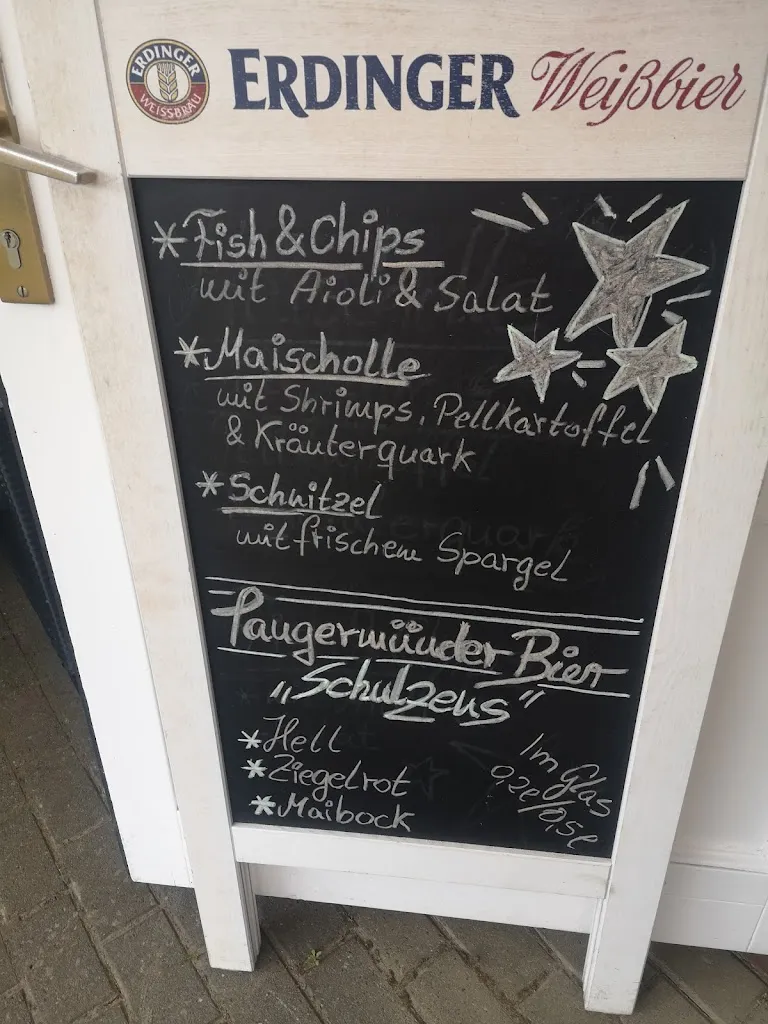 ERDINGER
WEISSBRÄU
ERDINGER Weißbier
* Fish & Chips
mit Aioli & Salat
* Maischolle
mit Shrimps, Pellkartoffel
& Kräuterquark
* Schnitzel
mit frischem Spargel
Tangermünder Bier
„Schulzens“
* Hell
* Ziegelrot
* Maibock
Im Glas
0,2l/0,5l